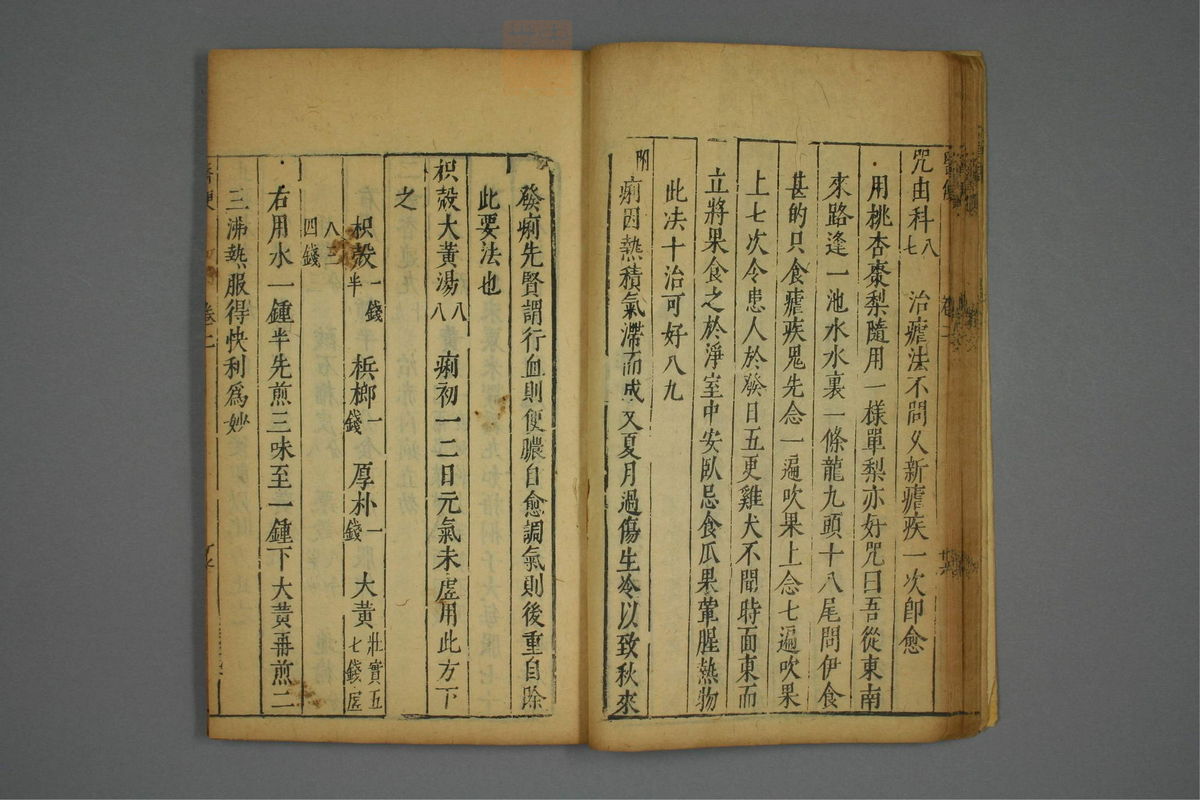 咒由科七八　治瘧法不問久新瘧疾一次卽愈
・用桃杏棗梨隨用一樣單梨亦好咒曰吾從東南
來路逢一池水水裏一條龍九頭十八尾問伊食
甚的只食瘧疾鬼先念一遍吹果上念七遍吹果
上七次令患人於發日五更雞犬不聞時面東而
立將果食之於淨室中安臥忌食瓜果葷腥熱物
此決十治可好八九
痢因熱積氣滯而成又夏月過傷生冷以致秋來
發痢先賢謂行血則便膿自愈調氣則後重自除
此要法也
枳殼大黃湯八八　痢初一二日元氣未虛用此方下
之
枳殼一錢半　梹榔一錢　厚朴一錢　大黃壯實五七錢虛
八三四錢
・右用水一鍾半先煎三味至一鍾下大黃再煎二
三沸熱服得快利爲妙
卷二